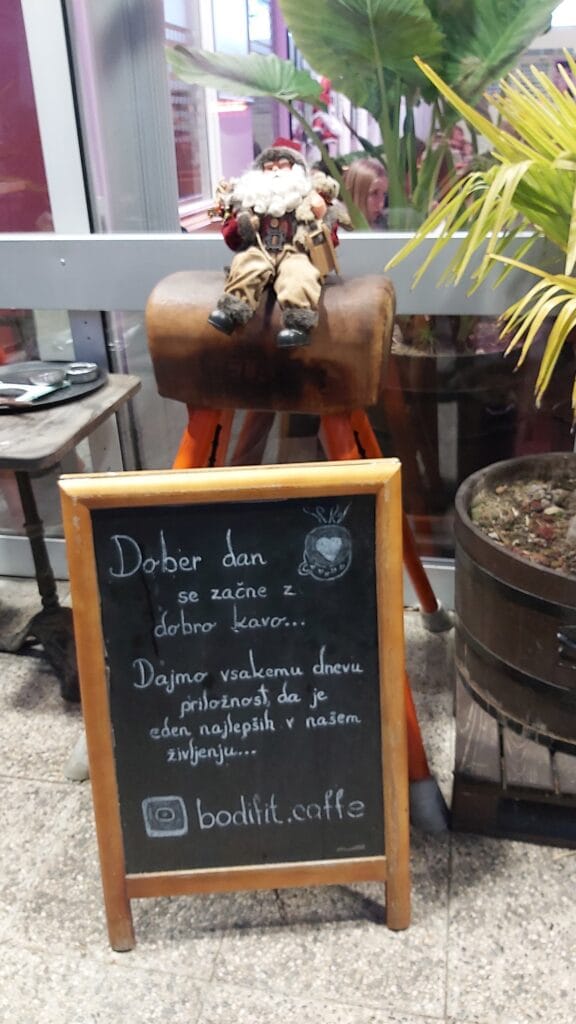 Dober dan
se začne z
dobro kavo...
Dajmo vsakemu dnevu
priložnost, da je
eden najlepših v našem
življenju...
bodifit.caffe